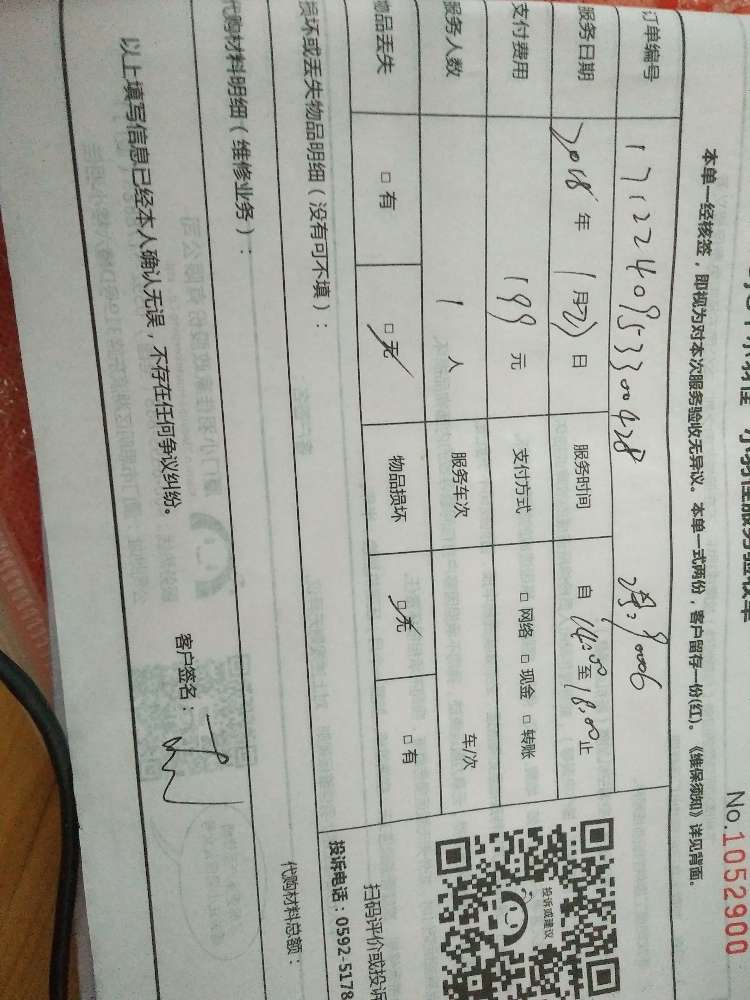 No.1052900
本单一经核签，即视为对本次服务验收无异议。本单一式两份，客户留存一份(红)。《维保须知》详见背面。
订单编号 17122409533300428
服务日期 2018年 1月21日 服务时间 自 14:00 至 18:00 止
支付费用 199 元 支付方式 □ 网络 □ 现金 □ 转账
服务人数 1 人 服务车次 车/次
物品丢失 □ 有 □ 无 物品损坏 □ 无 □ 有
损坏或丢失物品明细（没有可不填）：
代购材料明细（维修业务）：
代购材料总额：
以上填写信息已经本人确认无误，不存在任何争议纠纷。
客户签名：
投诉或建议
扫码评价或投诉
投诉电话：0592-5178